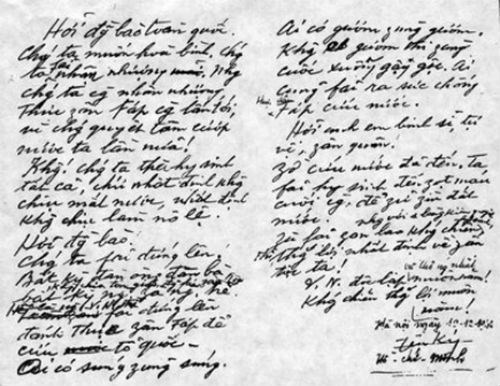 Hỡi đg̃ bào toàn quốc.
Chg' ta muốn hoà bình, chg'
ta fải nhân nhượng. Nhg
chg' ta cg̃ nhân nhượng
Thực zân Fáp cg̃ lấn tới,
vì chg' quyết tâm cướp
nước ta lần nữa!
Khg! Chg' ta thà hy sinh
tất cả, chứ nhất định khg
chịu mất nước, nhất định
khg chịu làm nô lệ.
Hỡi đg̃ bào!
Chg' ta fải đứng lên!
Bất kỳ đàn ông đàn bà
bất kỳ
fải đứng lên
đánh thực zân Fáp để
cứu tổ quốc.
Ai có súng zùng súng.
Ai có gươm zùng gươm.
Khg có gươm thì zùng
cuốc xuổng gậy gộc. Ai
cũng fải ra sức chống
Fáp cứu nước.
Hỡi anh em binh sĩ, tự
vệ, zân quân!
Zờ cứu nước đã đến. Ta
fải hy sinh đến zọt máu
cuối cg̀, để zữ zìn đất
nước.
Zù fải zan lao khg chiến
thg' lợi nhất định về zân
tộc ta!
V.N. độc lập và thống nhất
muôn năm!
Khg' chiến thg' lợi muôn
năm!
Hà nội ngày
Hồ chí Minh